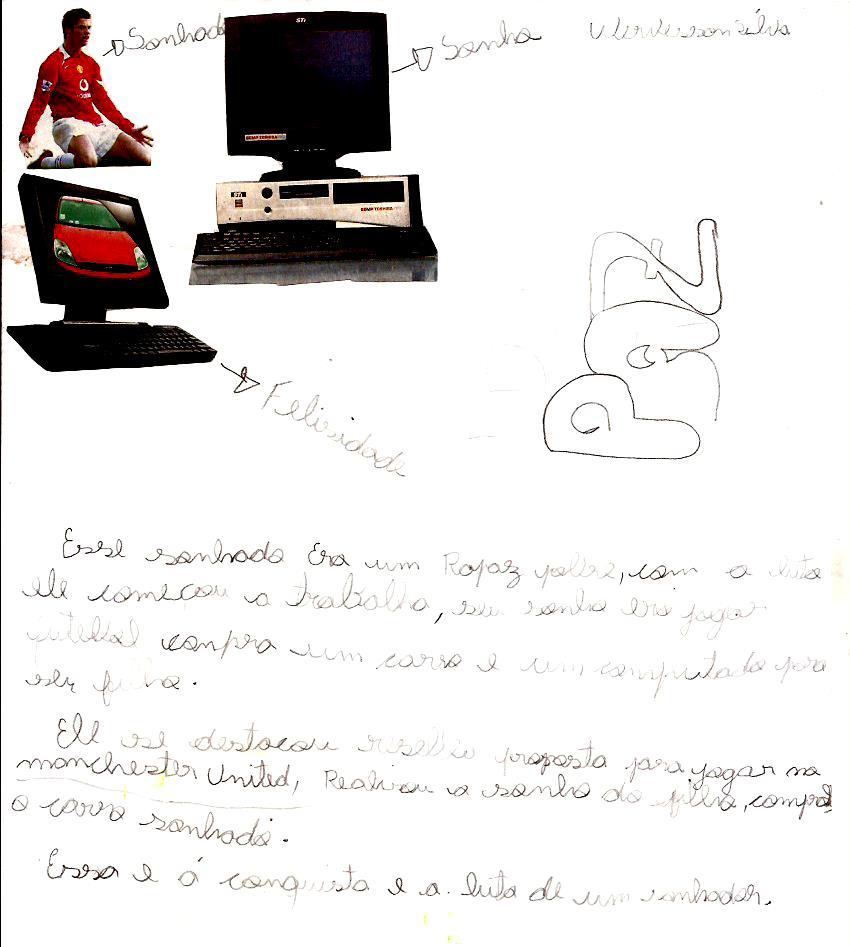 Sonhado
Sonho
Silva
STi
SEMP TOSHIBA
STi
SEMP TOSHIBA
Felicidade
Paz
Esse sonhado Era um Rapaz pobre, com a luta
ele começou a trabalha, seu sonho era jogar
futebol conpra um carro e um computado para
seu filho.
Ele se destacou resebeu proposta para jogar no
manchester United, Realizou o sonho do filho, compro
o carro sonhado.
Essa e á conquista e a luta de um sonhador.